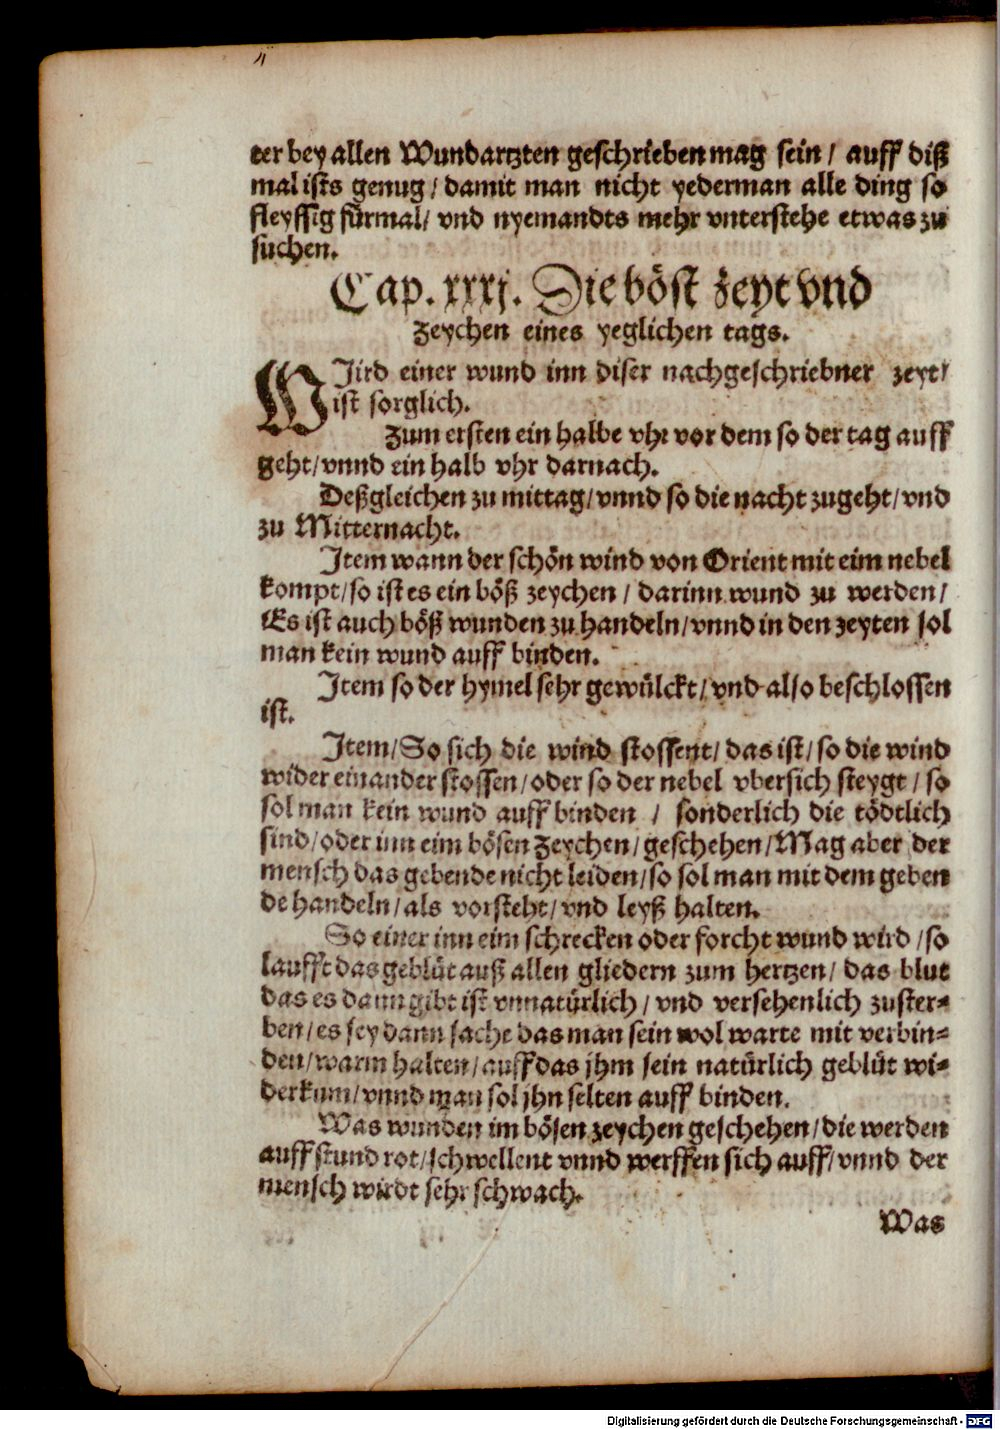 ter bey allen Wundartzten geschrieben mag sein / auff diß
mal ists genug / damit man nicht yederman alle ding so
fleyssig fürmal / vnd nyemandts mehr vnterstehe etwas zu
suchen.
Cap. xxxj. Die böst zeyt vnd
zeychen eines yeglichen tags.
WJird einer wund inn diser nachgeschriebner zeyt /
ist sorglich.
Zum ersten ein halbe vhr vor dem so der tag auff
geht / vnnd ein halb vhr darnach.
Deßgleichen zu mittag / vnnd so die nacht zugeht / vnd
zu Mitternacht.
Jtem wann der schön wind von Orient mit eim nebel
kompt / so ist es ein böß zeychen / darinn wund zu werden /
Es ist auch böß wunden zu handeln / vnnd in den zeyten sol
man kein wund auff binden.
Jtem so der hymel sehr gewülckt / vnd also beschlossen
ist.
Jtem / So sich die wind stossent / das ist / so die wind
wider einander stossen / oder so der nebel vbersich steygt / so
sol man kein wund auff binden / sonderlich die tödtlich
sind / oder inn eim bösen zeychen / geschehen / Mag aber der
mensch das gebende nicht leiden / so sol man mit dem geben
de handeln / als vorsteht / vnd leyß halten.
So einer inn eim schrecken oder forcht wund wird / so
laufft das geblüt auß allen gliedern zum hertzen / das blut
das es dann gibt ist vnnatürlich / vnd versehenlich zuster-
ben / es sey dann sache das man sein wol warte mit verbin-
den / warm halten / auff das jhm sein natürlich geblüt wi-
derkum / vnnd man sol jhn selten auff binden.
Was wunden im bösen zeychen geschehen / die werden
auff stund rot / schwellent vnnd werffen sich auff / vnnd der
mensch wirdt sehr schwach.
Was
Digitalisierung gefördert durch die Deutsche Forschungsgemeinschaft - DFG